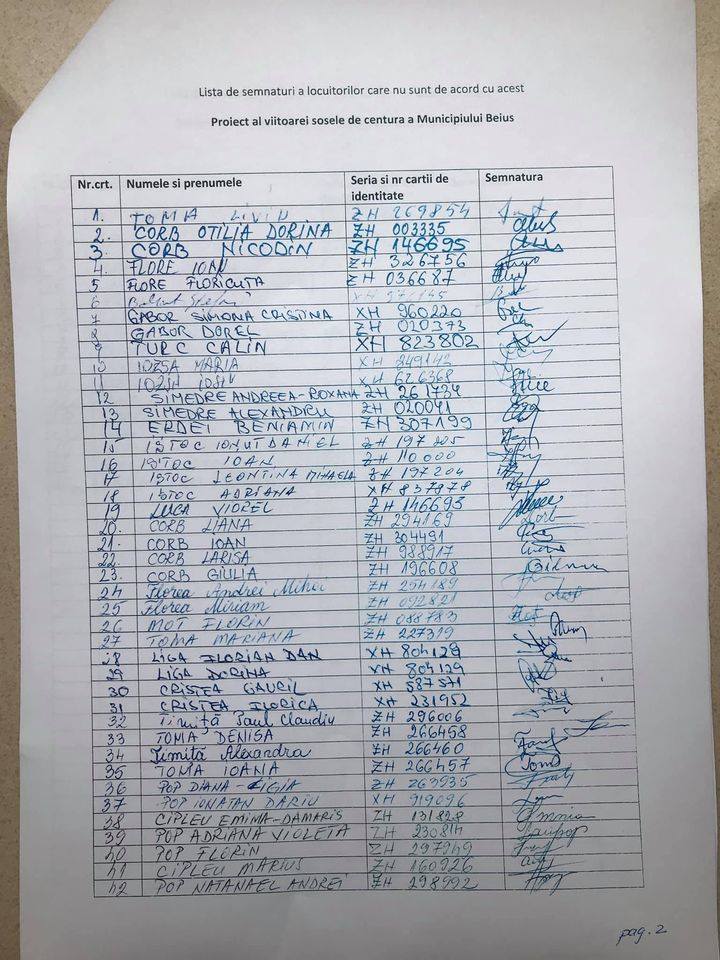 Lista de semnaturi a locuitorilor care nu sunt de acord cu acest
Proiect al viitoarei sosele de centura a Municipiului Beius
Nr.crt. Numele si prenumele Seria si nr cartii de identitate Semnatura
1. TOMA LIVIU ZH 269854
2. CORB OTILIA DORINA ZH 003335
3. CORB NICODIN ZH 146695
4. FLORE IOAN ZH 326756
5 FLORE FLORICUTA ZH 036687
6 XH
7 GABOR SIMONA CRISTINA XH 960220
8 GABOR DOREL ZH 020373
9 TURC CALIN XH 823802
10 IOZSA MARIA XH 249142
11 XH 626368
12 SIMEDRE ANDREEA-ROXANA ZH 261734
13 SIMEDRE ALEXANDRU ZH 020041
14 ERDEI BENIAMIN ZH 307199
15 ISTOC IONUT DANIEL ZH 197205
16 ISTOC IOAN ZH 110000
17 ISTOC LEONTINA MIHAELA ZH 197204
18 ISTOC ADRIANA XH 837978
19 LUCA VIOREL ZH 146693
20. CORB LIANA ZH 294169
21. CORB IOAN ZH 304491
22 CORB LARISA ZH 988917
23. CORB GIULIA ZH 196608
24 Florea Andrei Mihai ZH 254189
25 Florea Miriam ZH 092821
26 MOT FLORIN ZH 088783
27 TOMA MARIANA ZH 227319
28 LIGA FLORIAN DAN XH 804128
29 LIGA DORINA XH 804129
30 CRISTEA GAVRIL XH 587571
31 CRISTEA FLORICA XH 231952
32 Timiță Paul Claudiu ZH 296006
33 TOMA DENISA ZH 266458
34 Timiță Alexandra ZH 266460
35 TOMA IOANA ZH 266457 Toma
36 POP DIANA-LIGIA ZH 263935
37 POP IONATAN DARIU XH 919096
38 CIPLEU EMIMA-DAMARIS ZH 131828
39 POP ADRIANA VIOLETA ZH 230814
40 POP FLORIN ZH 297949
41 CIPLEU MARIUS ZH 160926
42 POP NATANAEL ANDREI ZH 298992
pag. 2